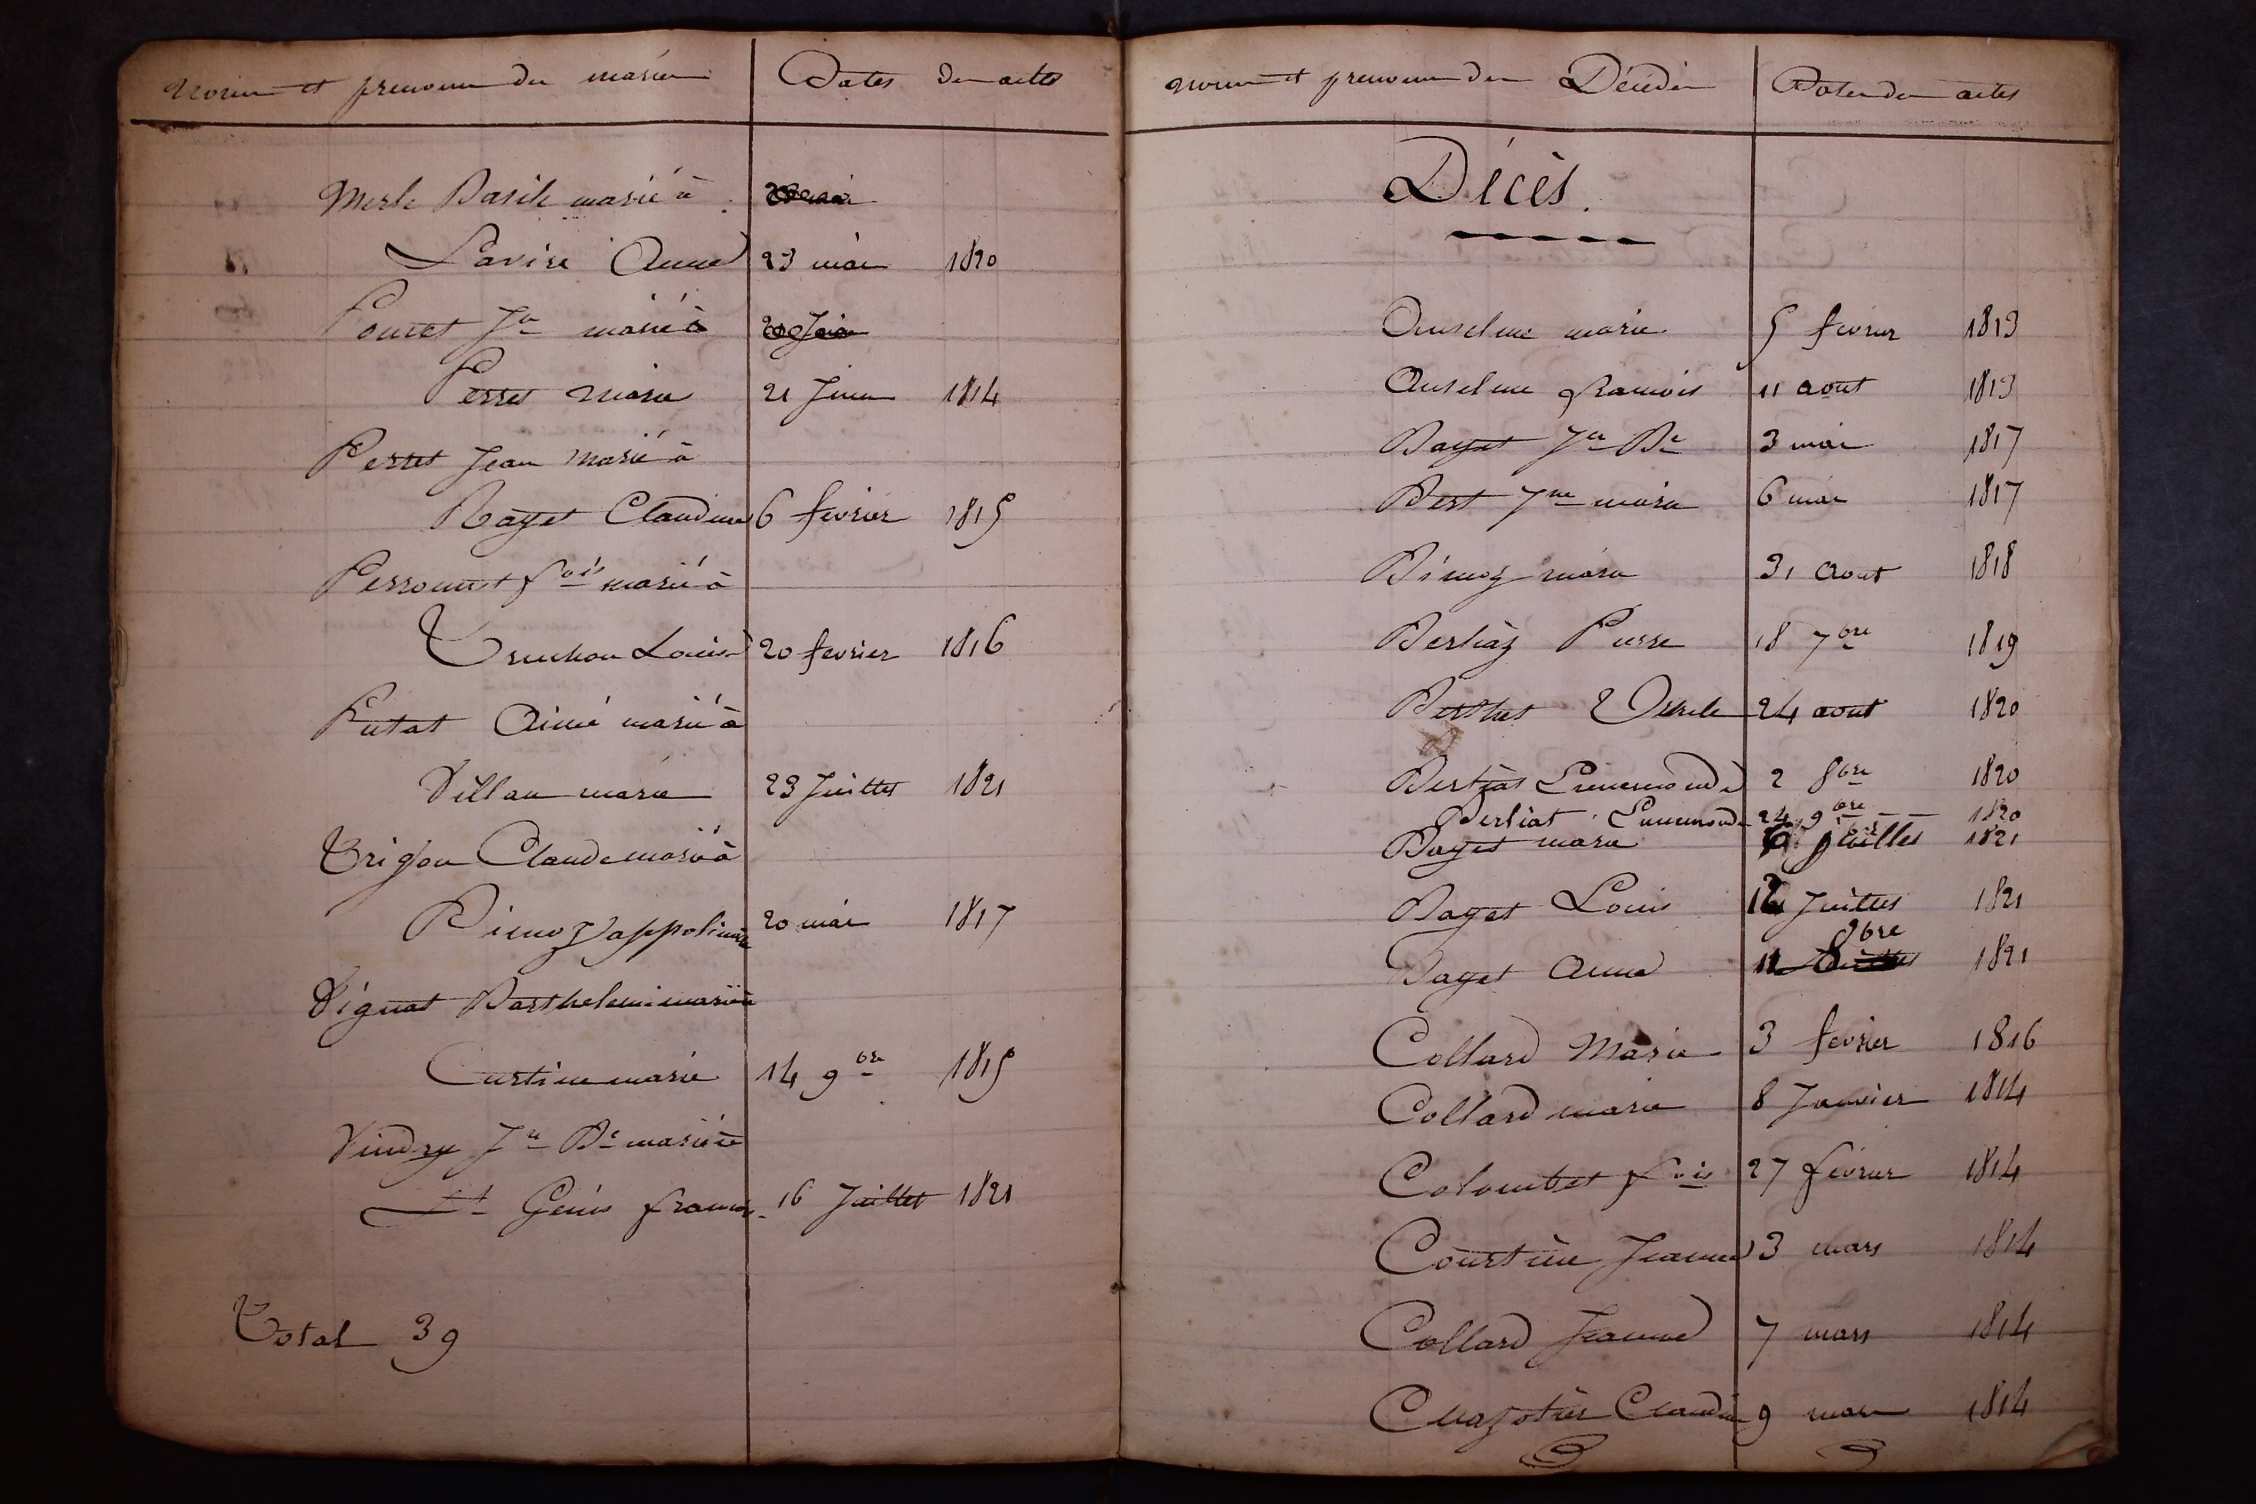 Noms et prenoms des mariés Dates des actes
Merle Basile marié à
Lavire Anne 23 mai 1820
Pouret Jn marié à
Perret Marie 21 Juin 1814
Perret Jean Marié à
Rayet Claudine 6 fevrier 1815
Perronnet fois marié à
Truchon Louise 20 fevrier 1816
Putat Aimé marié à
Villan marie 23 Juillet 1821
Trigon Claude marié à
Bimoz appolinaire 20 mai 1817
Vignat Barthelemi marié à
Curtine marie 14 9bre 1815
Vindry Jn Bte marié à
St Genis 16 Juillet 1821
Total 39
Noms et prenoms des Décédés Dates des actes
Décès.
Anselme marie 5 fevrier 1813
Anselme francois 11 aout 1813
Bayet Jn Bte 3 mai 1817
Bert Jne marie 6 mai 1817
Bimoz marie 31 Aout 1818
Berliaz Pierre 18 7bre 1819
Berthet Ursule 24 aout 1820
Berliat Ennemonde 2 8bre 1820
Berliat Ennemonde 24 9bre 1820
Bayet marie 1821
Bayet Louis 12 Juillet 1821
Bayet Anne 11 9bre 1821
Collard Marie 3 fevrier 1816
Collard marie 8 Janvier 1814
Colombet fois 27 fevrier 1814
Courtine Jeanne 3 mars 1814
Collard Jeanne 7 mars 1814
Chazotier Claudine 9 mars 1814